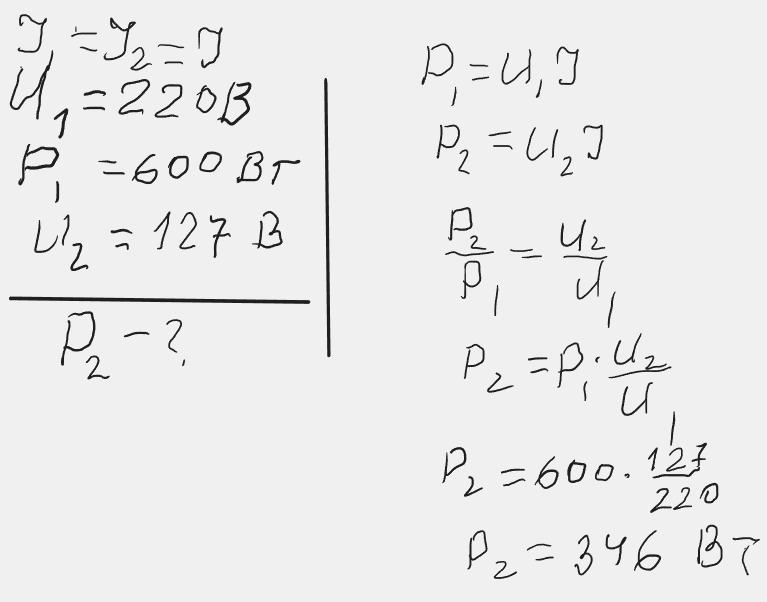 I₁ = I₂ = I
U₁ = 220 В
P₁ = 600 Вт
U₂ = 127 В
P₂ - ?
P₁ = U₁ I
P₂ = U₂ I
P₂/P₁ = U₂/U₁
P₂ = P₁ · U₂/U₁
P₂ = 600 · 127/220
P₂ = 346 Вт